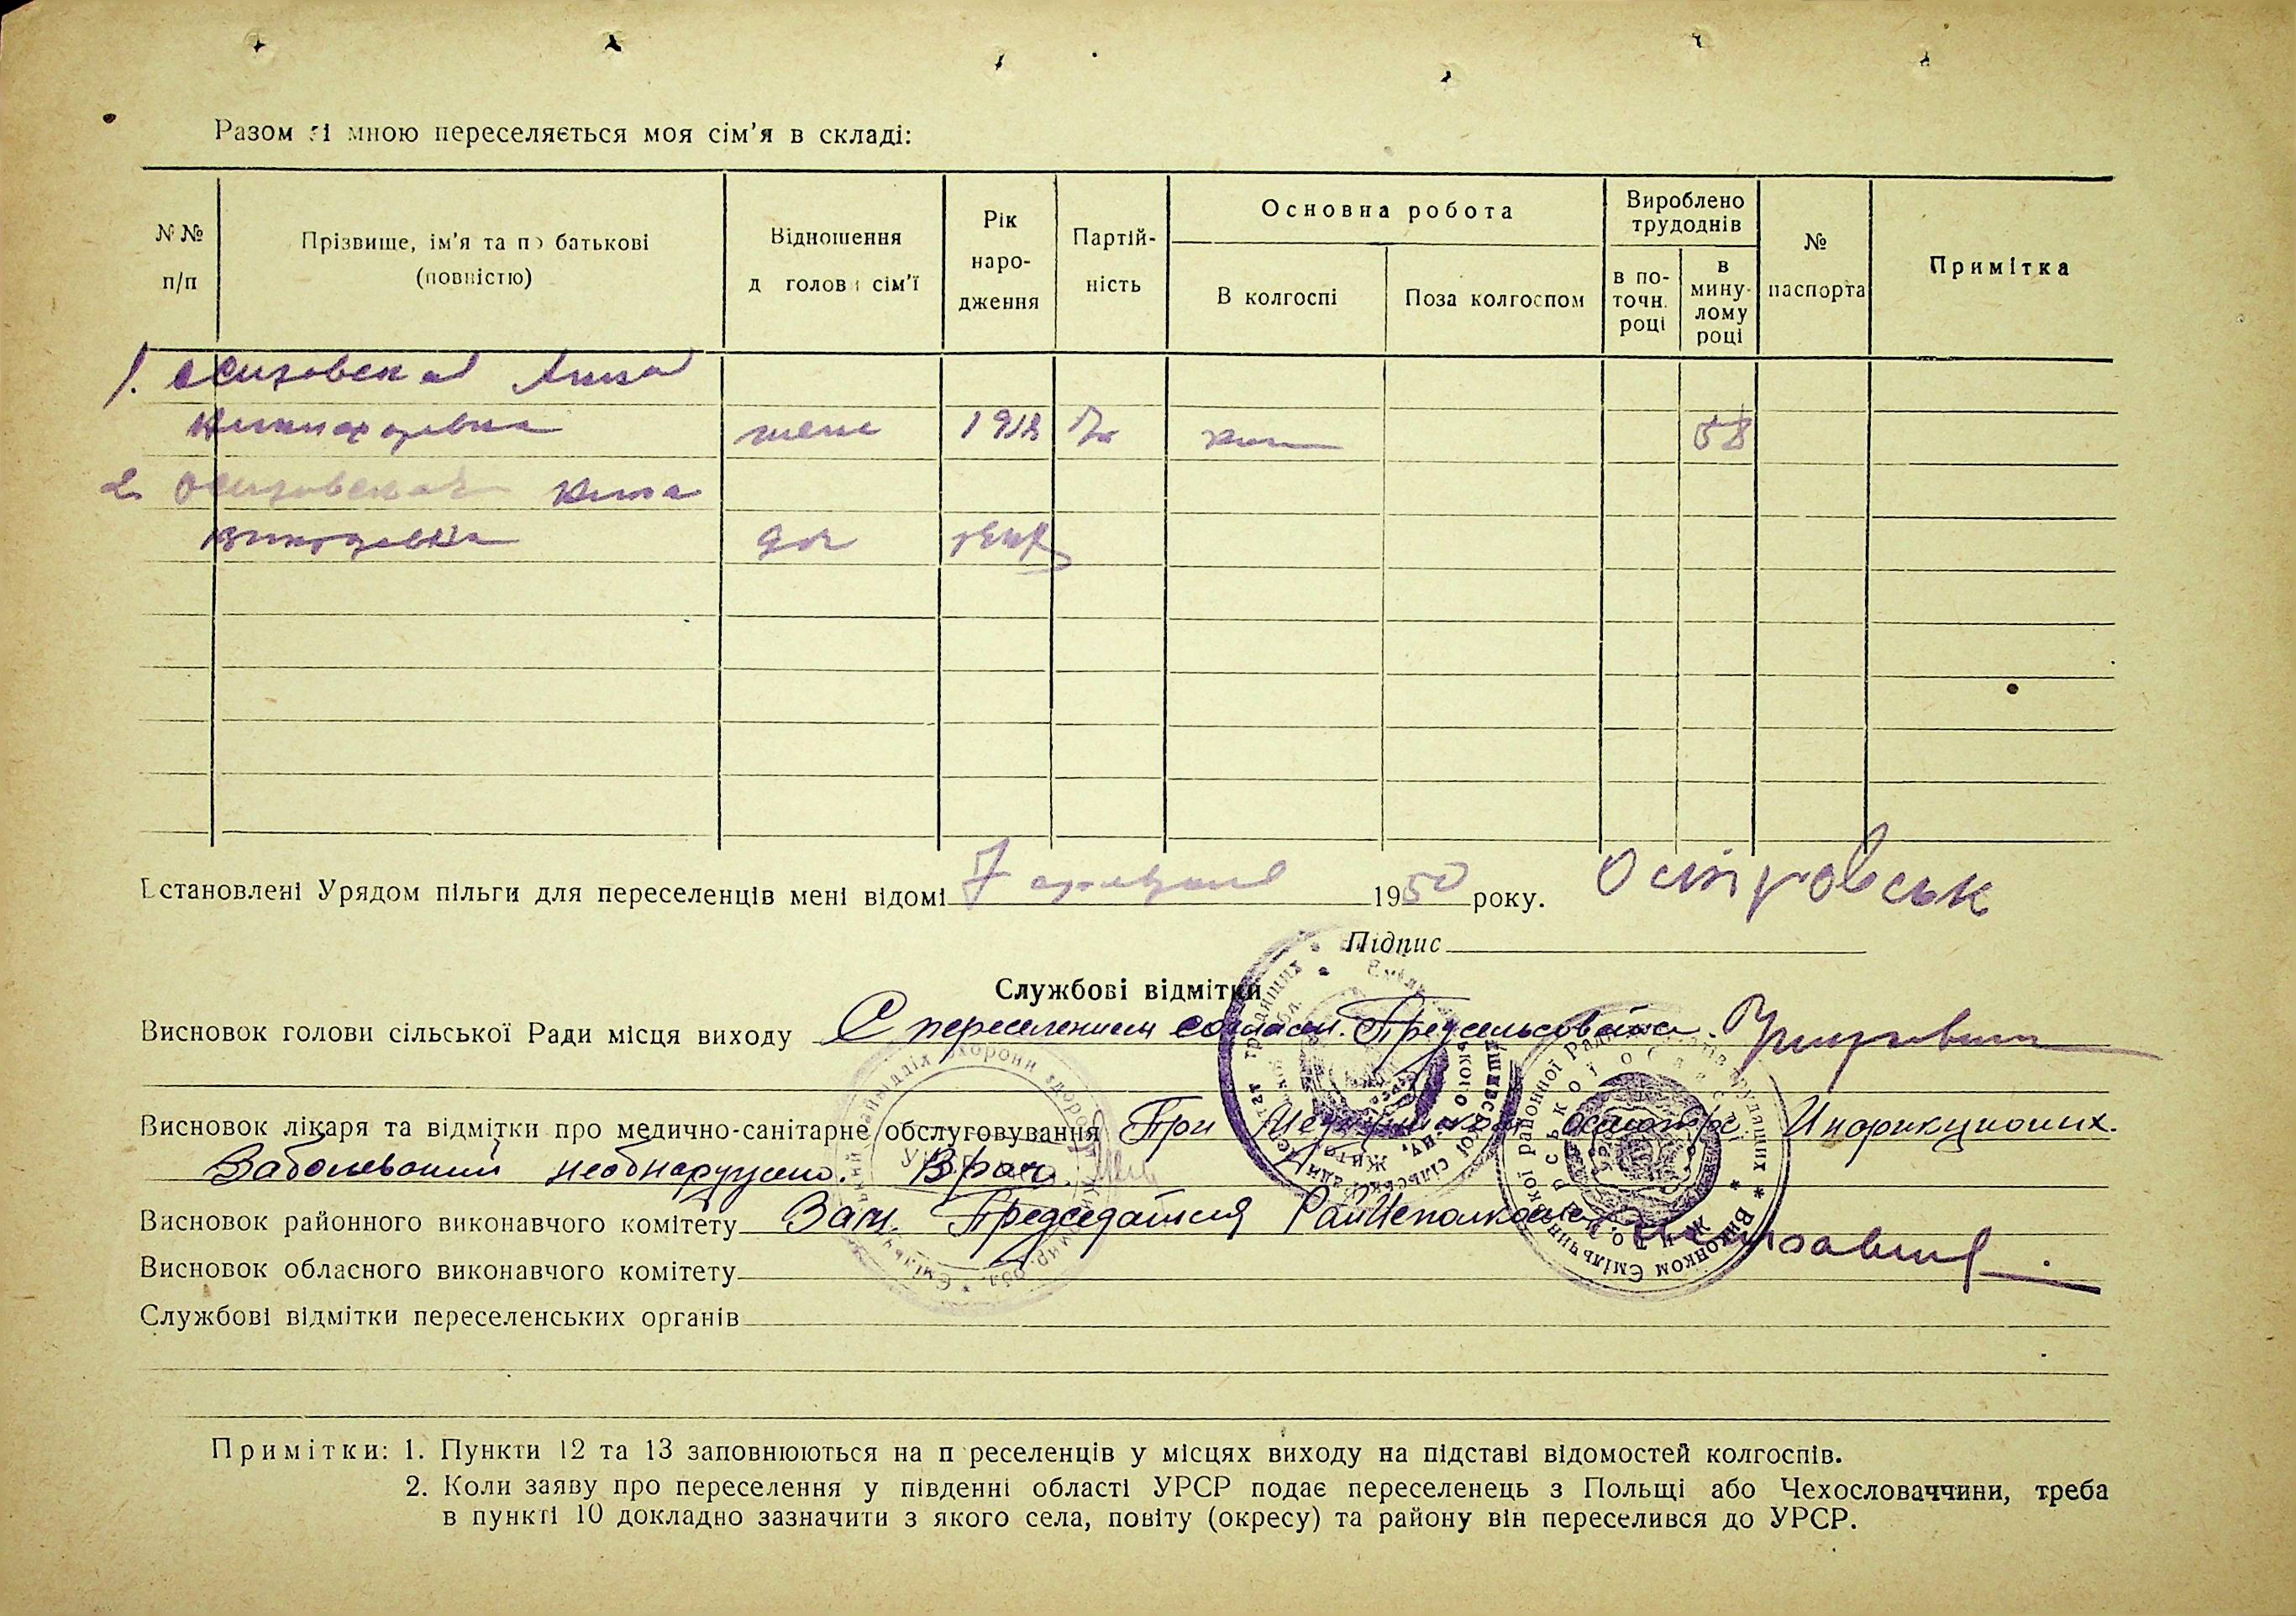 Разом зі мною переселяється моя сім'я в складі:
№№ п/п
Прізвище, ім'я та по батькові (повністю)
Відношення д голов сім'ї
Рік народження
Партійність
Основна робота
В колгоспі
Поза колгоспом
Вироблено трудоднів
в поточн. році
в минулому році
№ паспорта
Примітка
1.
жена 1918 58
2.
Встановлені Урядом пільги для переселенців мені відомі 7 1950 року.
Підпис
Службові відмітки
Висновок голови сільської Ради місця виходу С переселением согласен. Предсельсовета
Висновок лікаря та відмітки про медично-санітарне обслуговування При Медицинском осмотре Инфекционных.
Заболеваний необнаружено. Врач.
Висновок районного виконавчого комітету Зам. Председателя Райисполкома
Висновок обласного виконавчого комітету
Службові відмітки переселенських органів
Примітки: 1. Пункти 12 та 13 заповнюються на п реселенців у місцях виходу на підставі відомостей колгоспів.
2. Коли заяву про переселення у південні області УРСР подає переселенець з Польщі або Чехословаччини, треба
в пункті 10 докладно зазначити з якого села, повіту (окресу) та району він переселився до УРСР.